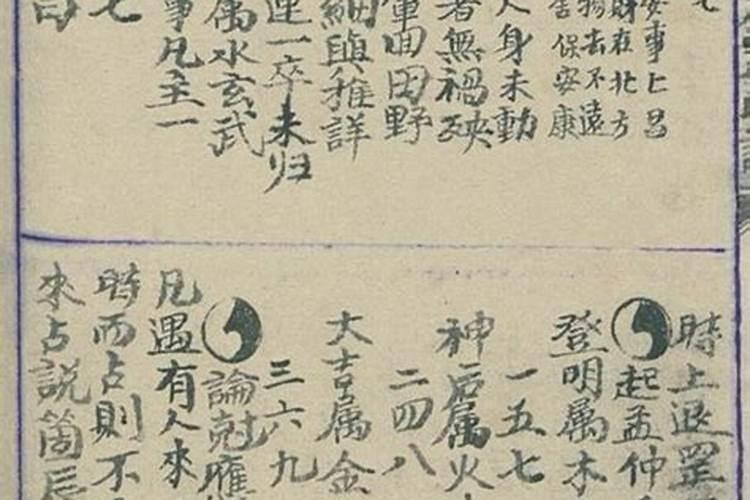 安事匕昌
財在北方
物去不遠
舍保安康
人身未動
者無禍殃
軍回田野
細與推詳
連一卒未归
属水玄武
事凡主一
七
時上退罡
起孟仲
登明属木
一五七
神后属火
二四八
大吉属金
三六九
論尅應
凡遇有人來
時而占則不
來占説箇辰